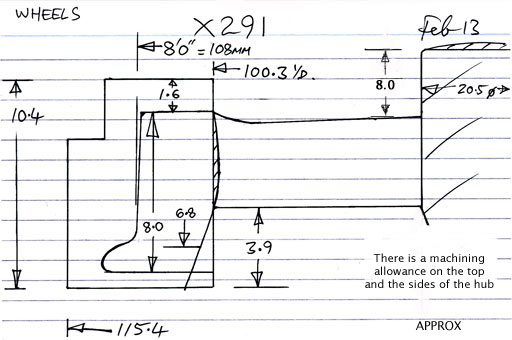 WHEELS
X291
Feb 13
8'0" = 108MM
100.3 1/D.
1.6
8.0
20.5 ø
10.4
8.0
6.8
3.9
There is a machining
allowance on the top
and the sides of the hub
115.4
APPROX